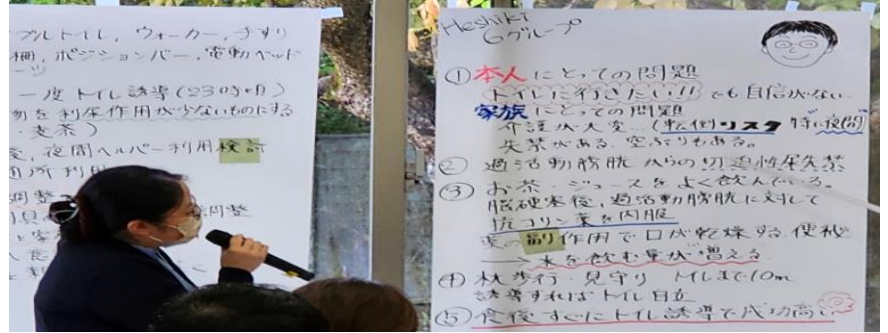 ブルトイレ, ウォーカー, 手すり
柵, ポジションバー, 電動ベッド
一度トイレ誘導(23時頃)
を利尿作用が少ないものにする
麦茶)
夜間ヘルパー利用検討
所利用
調整
調整
Heshiki
Gグループ
① 本人にとっての問題
トイレに行きたい!! でも自信がない
家族にとっての問題
介護が大変 (転倒リスク 特に夜間)
失禁がある. 空ぶりもある。
② 過活動膀胱からの切迫性尿失禁
③ お茶・ジュースをよく飲んでいる。
脳梗塞後, 過活動膀胱に対して
抗コリン薬を内服
薬の副作用で口が乾燥する. 便秘
→水を飲む量が増える
④ 杖歩行・見守り トイレまで10m
誘導すればトイレ自立
⑤ 食後すぐにトイレ誘導で成功高い